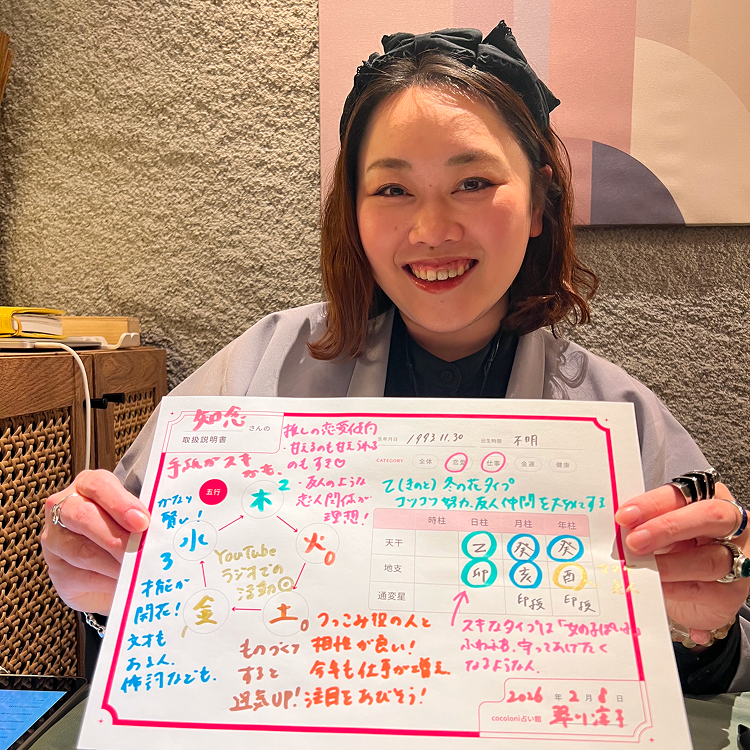 知念 さんの
取扱説明書
推しの恋愛傾向
・甘えるのも甘えられる
のもすき♡
・友人のような
恋人関係が
理想!
手紙がスキ
かも。
生年月日 1993.11.30 出生時間 不明
CATEGORY 全体 恋愛 仕事 金運 健康
乙(きのと) 冬の花タイプ
コツコツ努力、友人仲間を大切にする
時柱 日柱 月柱 年柱
天干 乙 癸 癸
地支 卯 亥 酉
通変星 印授 印授
五行
木 2
火 0
土 0
金 1
水
3
YouTube
ラジオでの
活動◎
かなり
賢い!
才能が
開花!
文才も
ある人。
作詞なども。
ものづくり
すると
運気UP!
つっこみ役の人と
相性が良い!
今年も仕事が増え
注目をあびそう!
スキなタイプは「女の子ぽい子」
守ってあげたく
なるような人。
2026年2月8日
cocoloni占い館